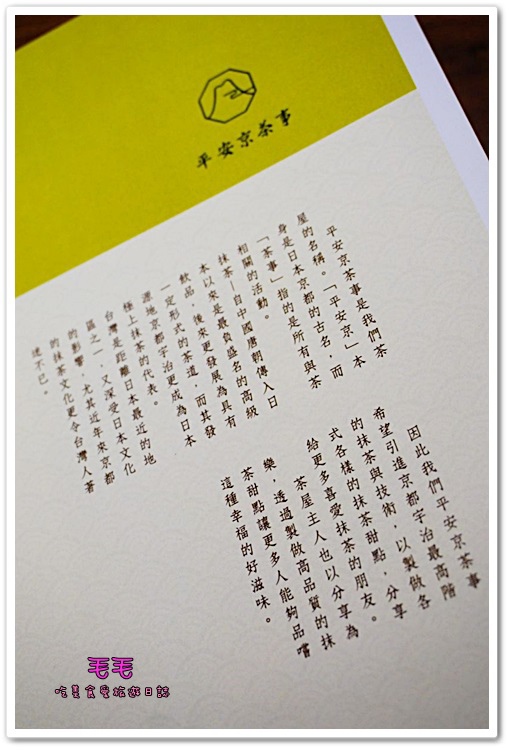 平安京茶事
平安京茶事是我們茶
屋的名稱。「平安京」本
身是日本京都的古名，而
「茶事」指的是所有與茶
相關的活動。
抹茶—自中國唐朝傳入日
本以來是最負盛名的高級
飲品，後來更發展為具有
一定形式的茶道，而其發
源地京都宇治更成為日本
極上抹茶的代表。
台灣是距離日本最近的地
區之一，又深受日本文化
的影響，尤其近年來京都
的抹茶文化更令台灣人著
迷不已。
因此我們平安京茶事
希望引進京都宇治最高階
的抹茶與技術，以製做各
式各樣的抹茶甜點，分享
給更多喜愛抹茶的朋友。
茶屋主人也以分享為
樂，透過製做高品質的抹
茶甜點讓更多人能夠品嚐
這種幸福的好滋味。
毛毛
吃美食愛旅遊日誌